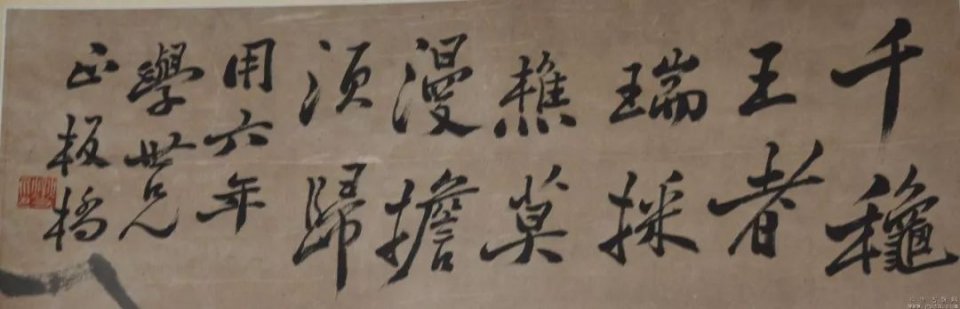 千穐
王者
瑞採
樵莫
漫擔
須歸
用六年
學世兄
正板橋